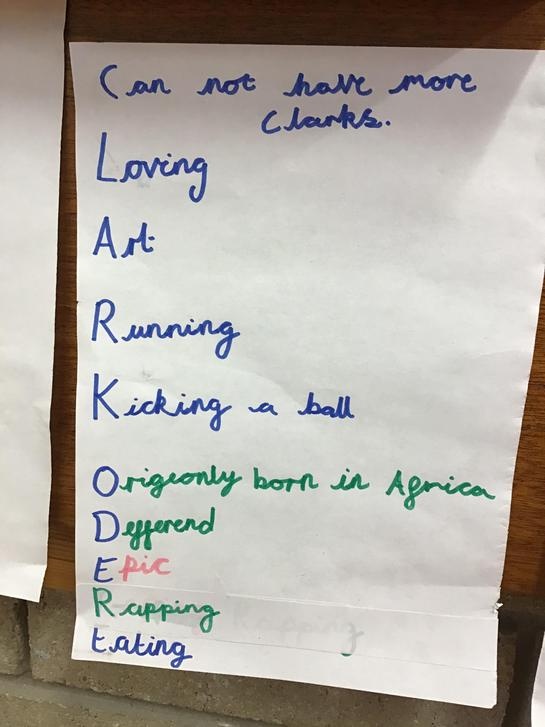 Can not have more
Clarks.
Loving
Art
Running
Kicking a ball
Origeonly born in Africa
Defferend
Epic
Rapping
Eating